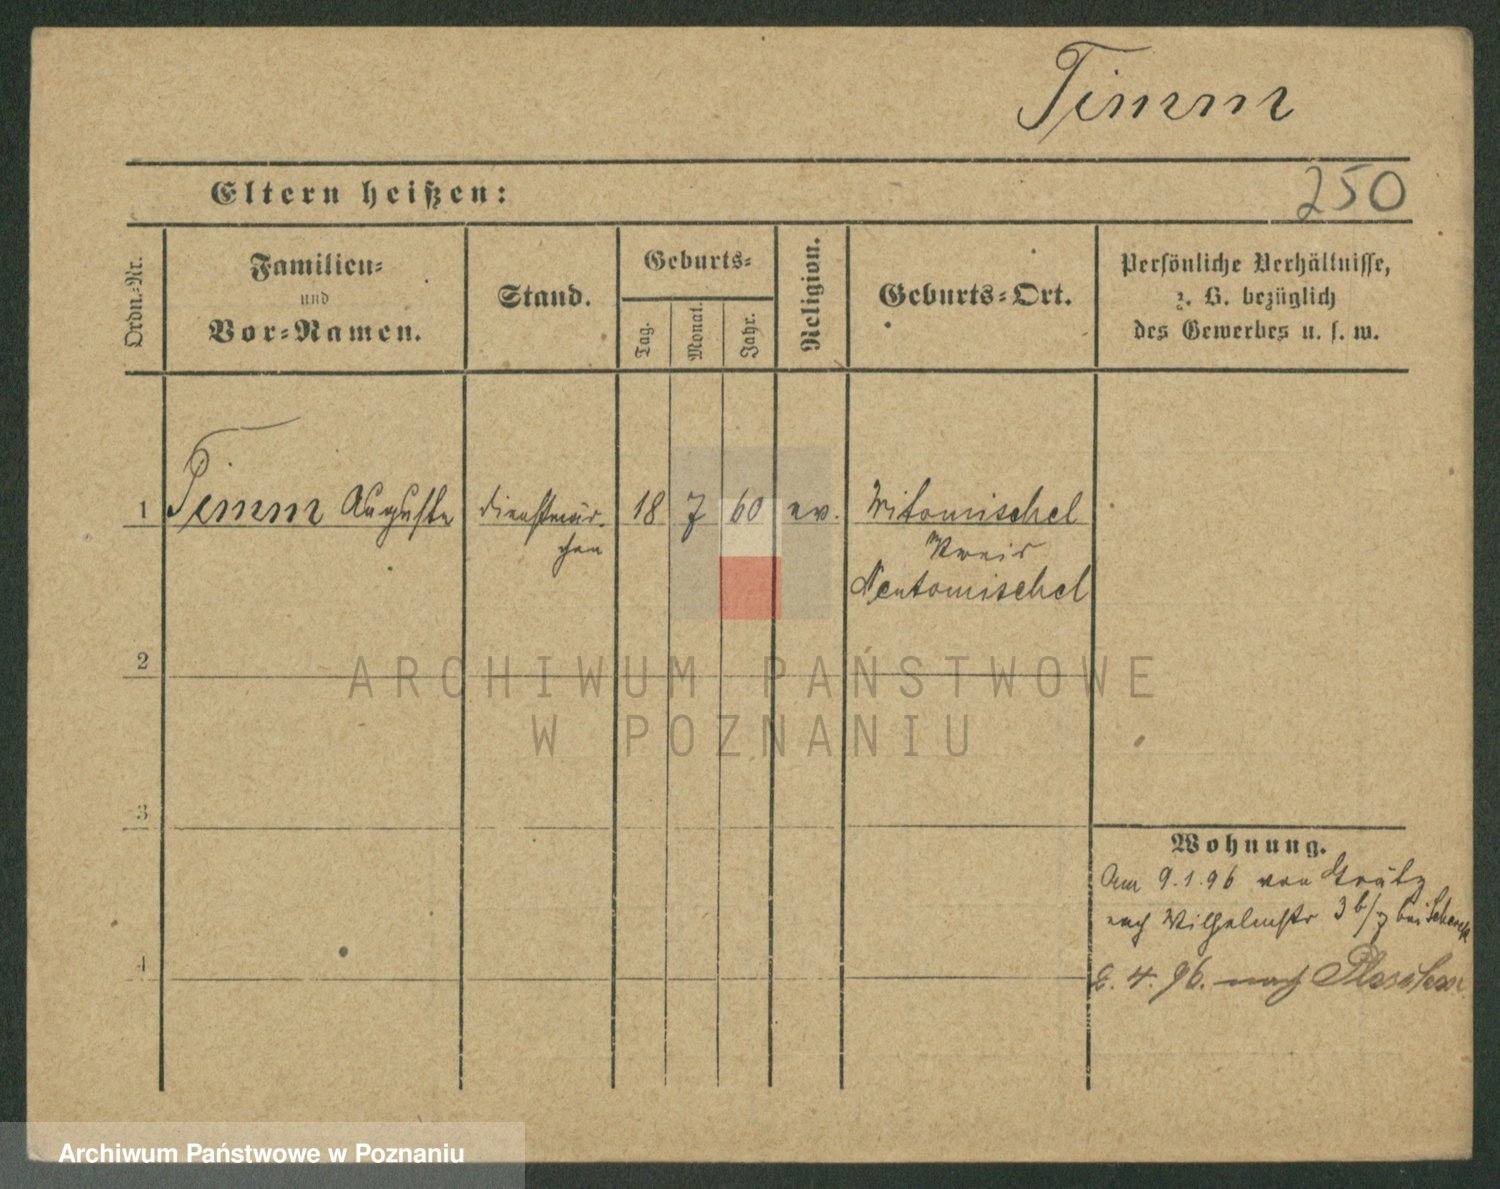 Timm
Eltern heißen:
250
Ordn.-Nr.
Familien-
und
Vor-Namen.
Stand.
Geburts-
Tag.
Monat.
Jahr.
Religion.
Geburts-Ort.
Persönliche Verhältnisse,
z. B. bezüglich
des Gewerbes u. s. w.
1 Timm Auguste Dienstmäd- 18 7 60 ev. Witomischel
chen Kreis
Neutomischel
2
ARCHIWUM PAŃSTWOWE
W POZNANIU
3
Wohnung.
Am 9.1.96 von Grätz
nach Wilhelmstr 3 b/z bei
4
2. 4. 96. nach
Archiwum Państwowe w Poznaniu